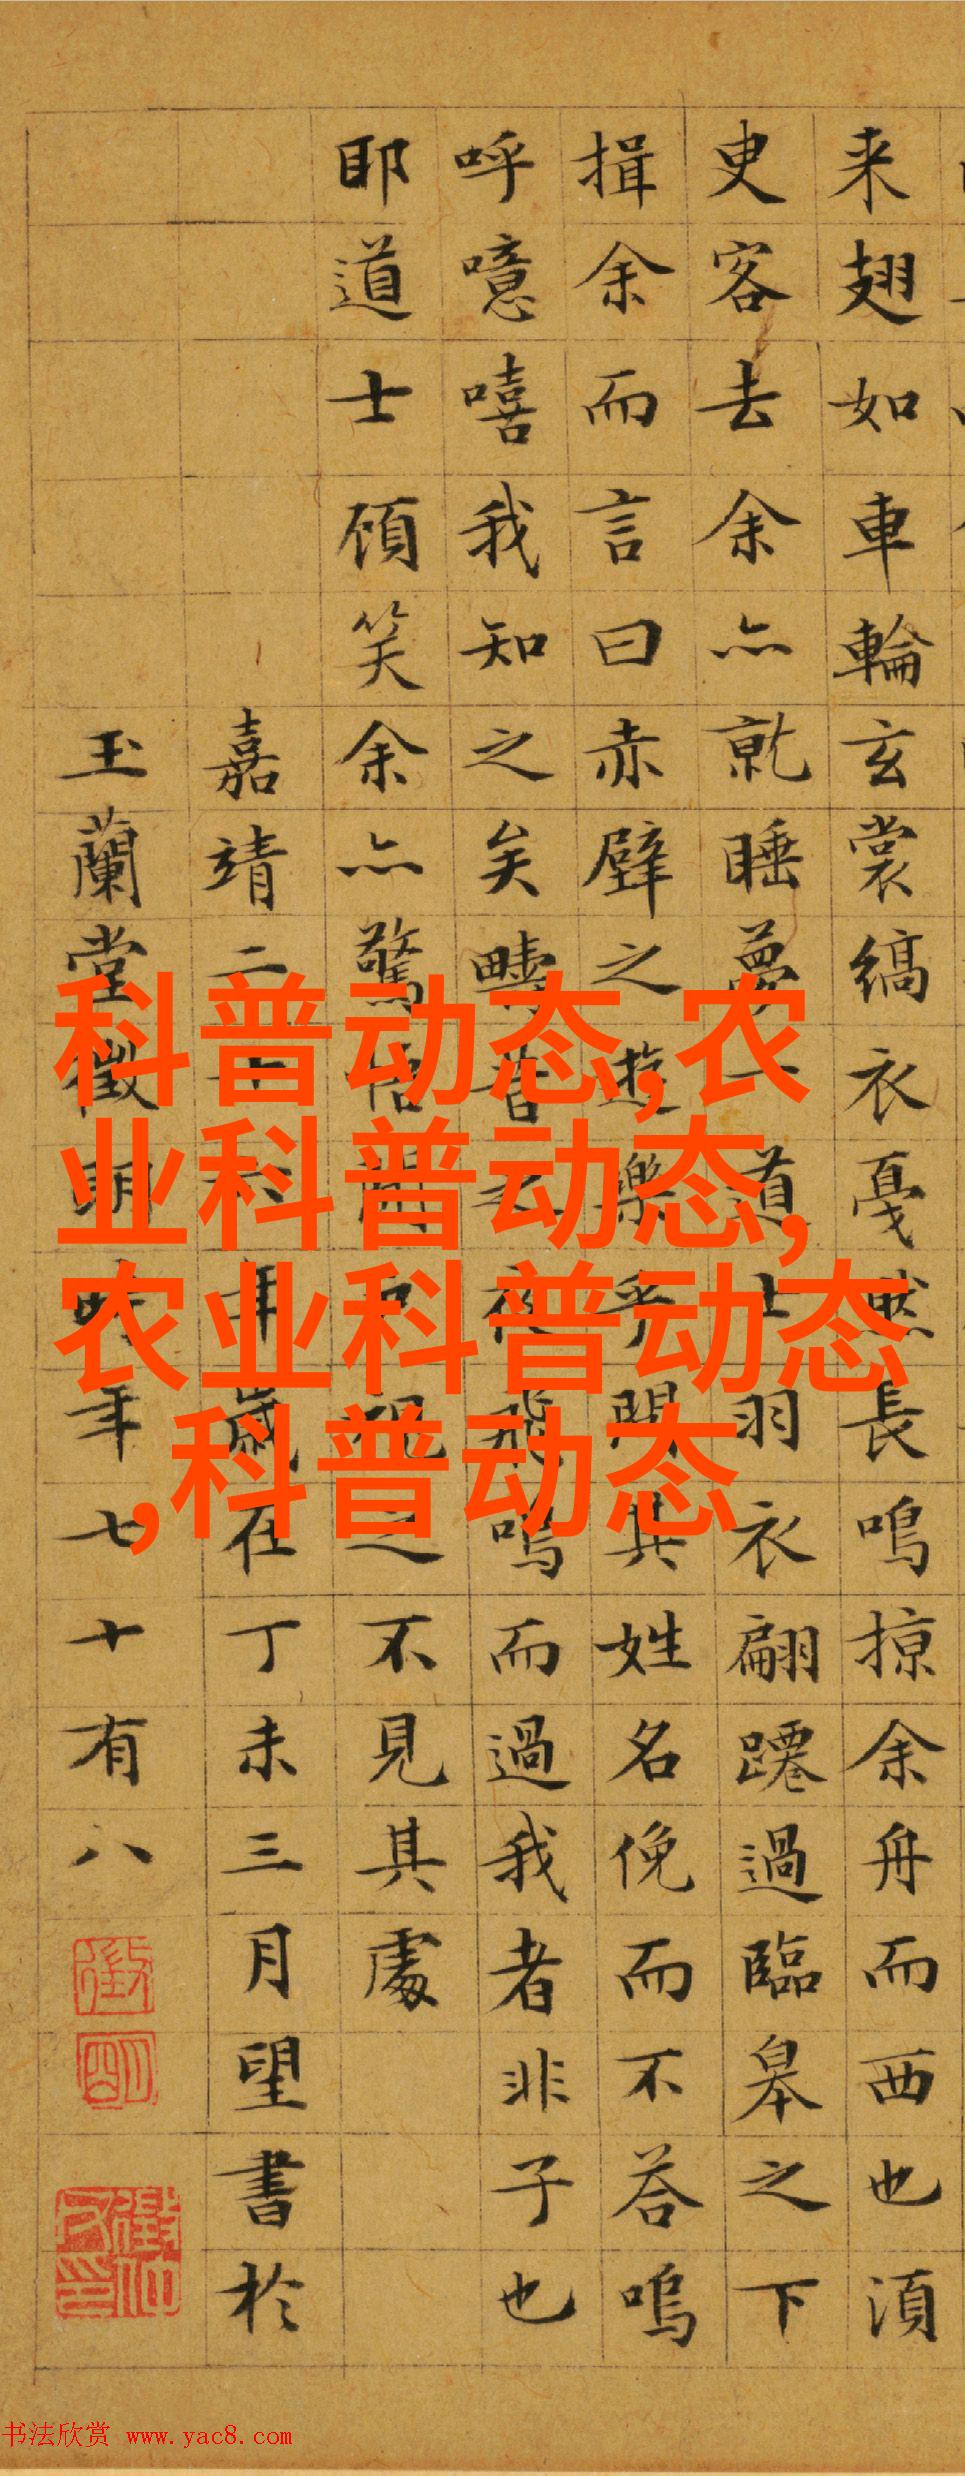 来翅如車輪玄裳縞衣戛然長鳴掠余舟而西也須
叓客去余亦就睡夢一道士羽衣翩躚過臨皋之下
揖余而言曰赤壁之遊樂乎問其姓名俛而不荅嗚
呼噫嘻我知之矣疇昔之夜飛鳴而過我者非子也
耶道士顧笑余亦驚悟開戶視之不見其處
嘉靖二十六年歲在丁未三月望書於
玉蘭堂徵明時年七十有八
徵
明
科普动态,农
业科普动态,
农业科普动态
,科普动态
书法欣赏 www.yac8.com